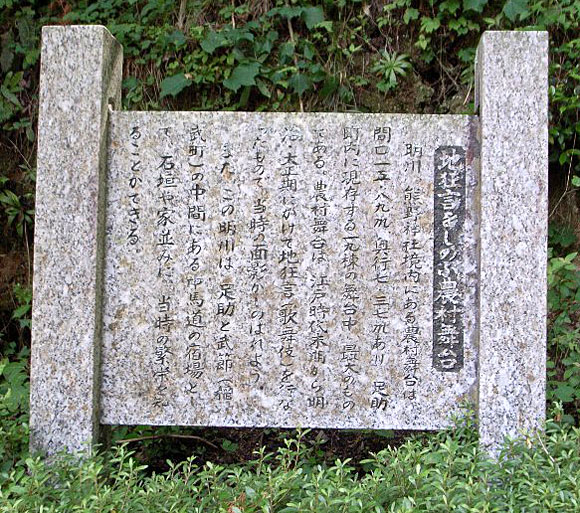 地狂言をしのぶ農村舞台
明川 熊野神社境内にある農村舞台は、
間口一五・八九米、奥行七・三七米あり、足助
町内に現存する一九棟の舞台中、最大のもの
である。農村舞台は、江戸時代末期から明
治・大正期にかけて地狂言(歌舞伎)を行な
ったもので、当時の面影がしのばれよう。
また、この明川は、足助と武節(稲
武町)の中間にある中馬道の宿場と
て、石垣や家並みに、当時の繁栄を見
ることができる。